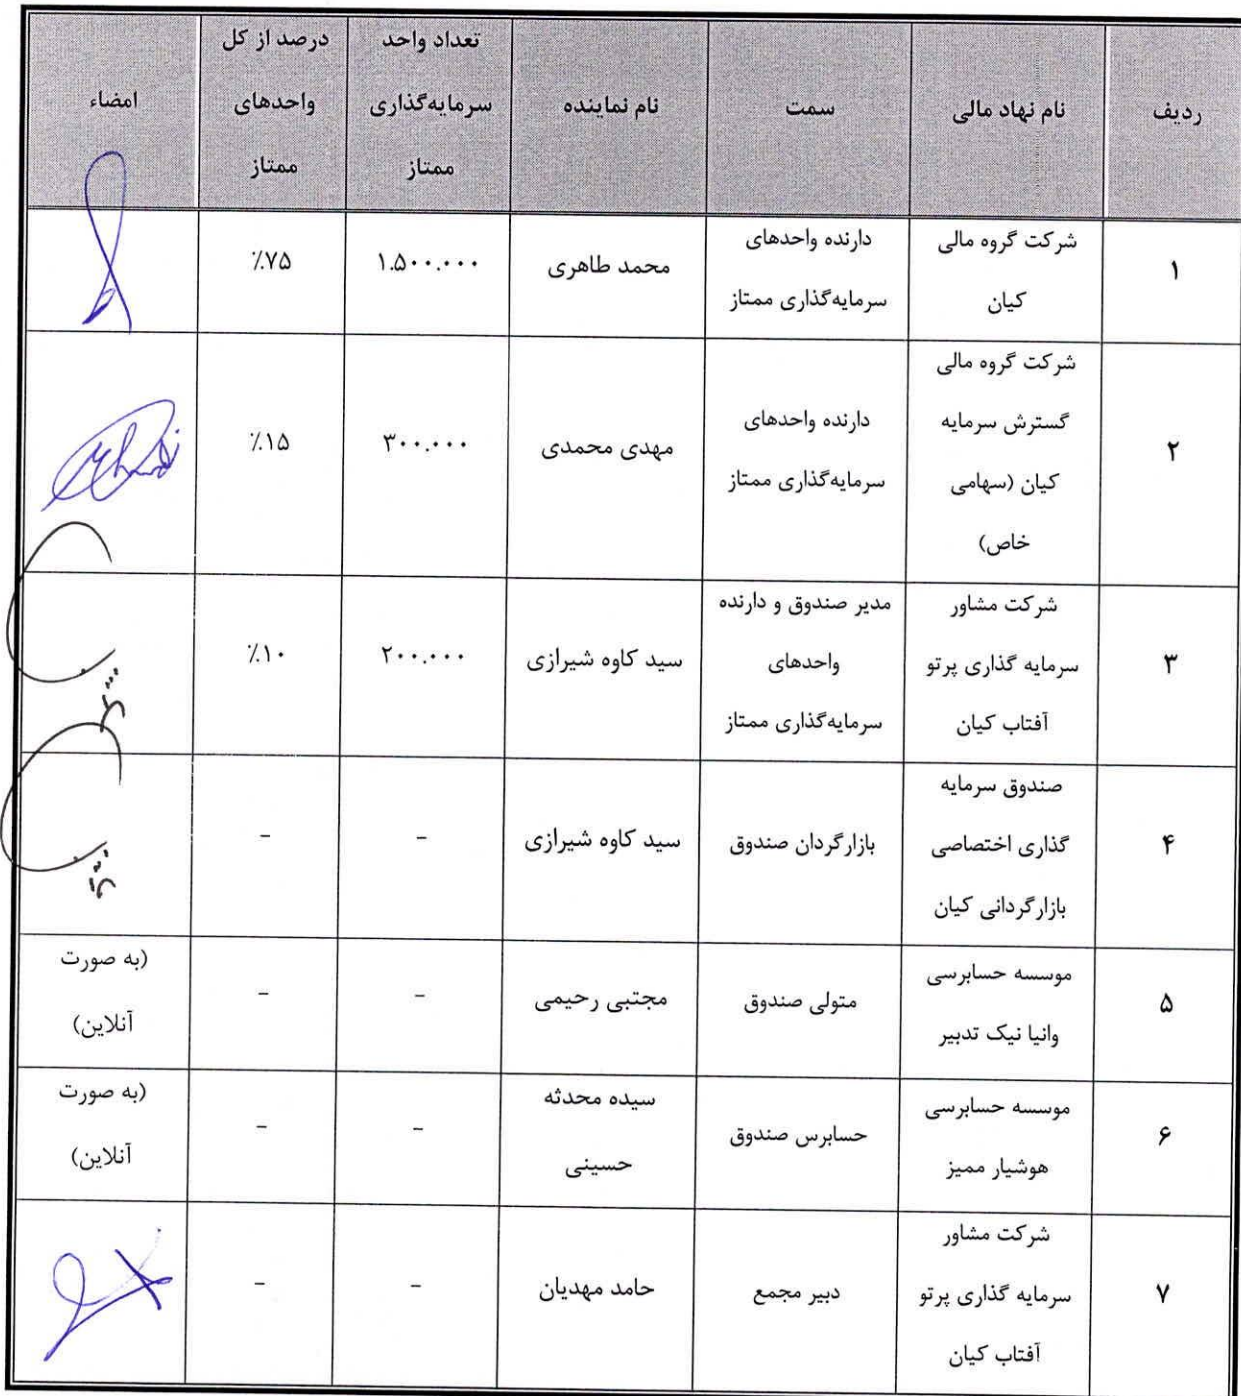 ردیف
نام نهاد مالی
سمت
نام نماینده
تعداد واحد
سرمایه‌گذاری
ممتاز
درصد از کل
واحدهای
ممتاز
امضاء
۱
شرکت گروه مالی
کیان
دارنده واحدهای
سرمایه‌گذاری ممتاز
محمد طاهری
۱.۵۰۰.۰۰۰
٪۷۵
۲
شرکت گروه مالی
گسترش سرمایه
کیان (سهامی
خاص)
دارنده واحدهای
سرمایه‌گذاری ممتاز
مهدی محمدی
۳۰۰.۰۰۰
٪۱۵
۳
شرکت مشاور
سرمایه گذاری پرتو
آفتاب کیان
مدیر صندوق و دارنده
واحدهای
سرمایه‌گذاری ممتاز
سید کاوه شیرازی
۲۰۰.۰۰۰
٪۱۰
۴
صندوق سرمایه
گذاری اختصاصی
بازارگردانی کیان
بازارگردان صندوق
سید کاوه شیرازی
-
-
۵
موسسه حسابرسی
وانیا نیک تدبیر
متولی صندوق
مجتبی رحیمی
-
-
(به صورت
آنلاین)
۶
موسسه حسابرسی
هوشیار ممیز
حسابرس صندوق
سیده محدثه
حسینی
-
-
(به صورت
آنلاین)
۷
شرکت مشاور
سرمایه گذاری پرتو
آفتاب کیان
دبیر مجمع
حامد مهدیان
-
-